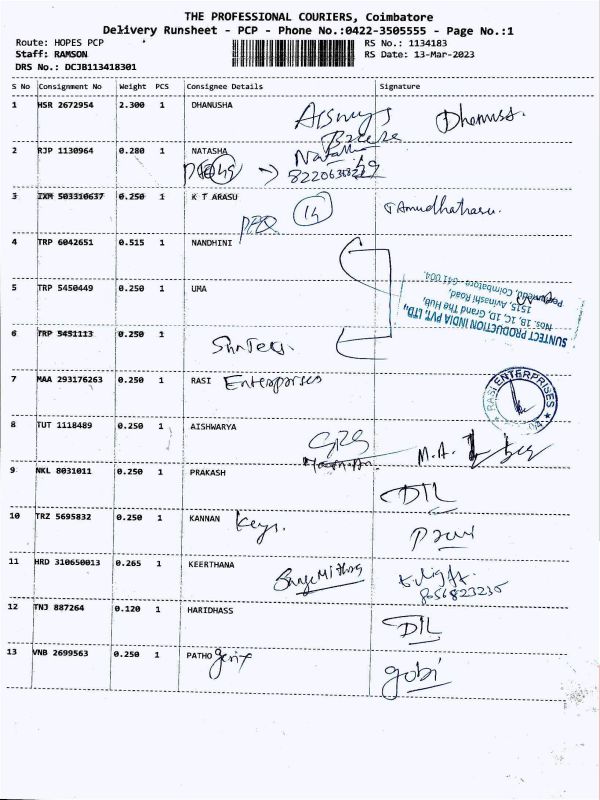 THE PROFESSIONAL COURIERS, Coimbatore
Delivery Runsheet - PCP - Phone No.:0422-3505555 - Page No.:1
Route: HOPES PCP
RS No.: 1134183
Staff: RAMSON
RS Date: 13-Mar-2023
DRS No.: DCJB113418301
S No Consignment No Weight PCS Consignee Details Signature
1 HSR 2672954 2.300 1 DHANUSHA
2 RJP 1130964 0.280 1 NATASHA
3 IXM 503310637 0.250 1 K T ARASU
14
4 TRP 6042651 0.515 1 NANDHINI
5 TRP 5450449 0.250 1 UMA
SUNTECT PRODUCTION INDIA PVT. LTD.,
Nos. 1B, 1C, 1D, Grand The Hub,
1515, Avinashi Road,
Peelamedu, Coimbatore - 641 004.
6 TRP 5451113 0.250 1
7 MAA 293176263 0.250 1 RASI Enterprises
RASI ENTERPRISES
8 TUT 1118489 0.250 1 AISHWARYA
M.A.
9 NKL 8031011 0.250 1 PRAKASH
DIL
10 TRZ 5695832 0.250 1 KANNAN Keys.
11 HRD 310650013 0.265 1 KEERTHANA
8056823235
12 TNJ 887264 0.120 1 HARIDHASS
DIL
13 VNB 2699563 0.250 1 PATHO
gobi